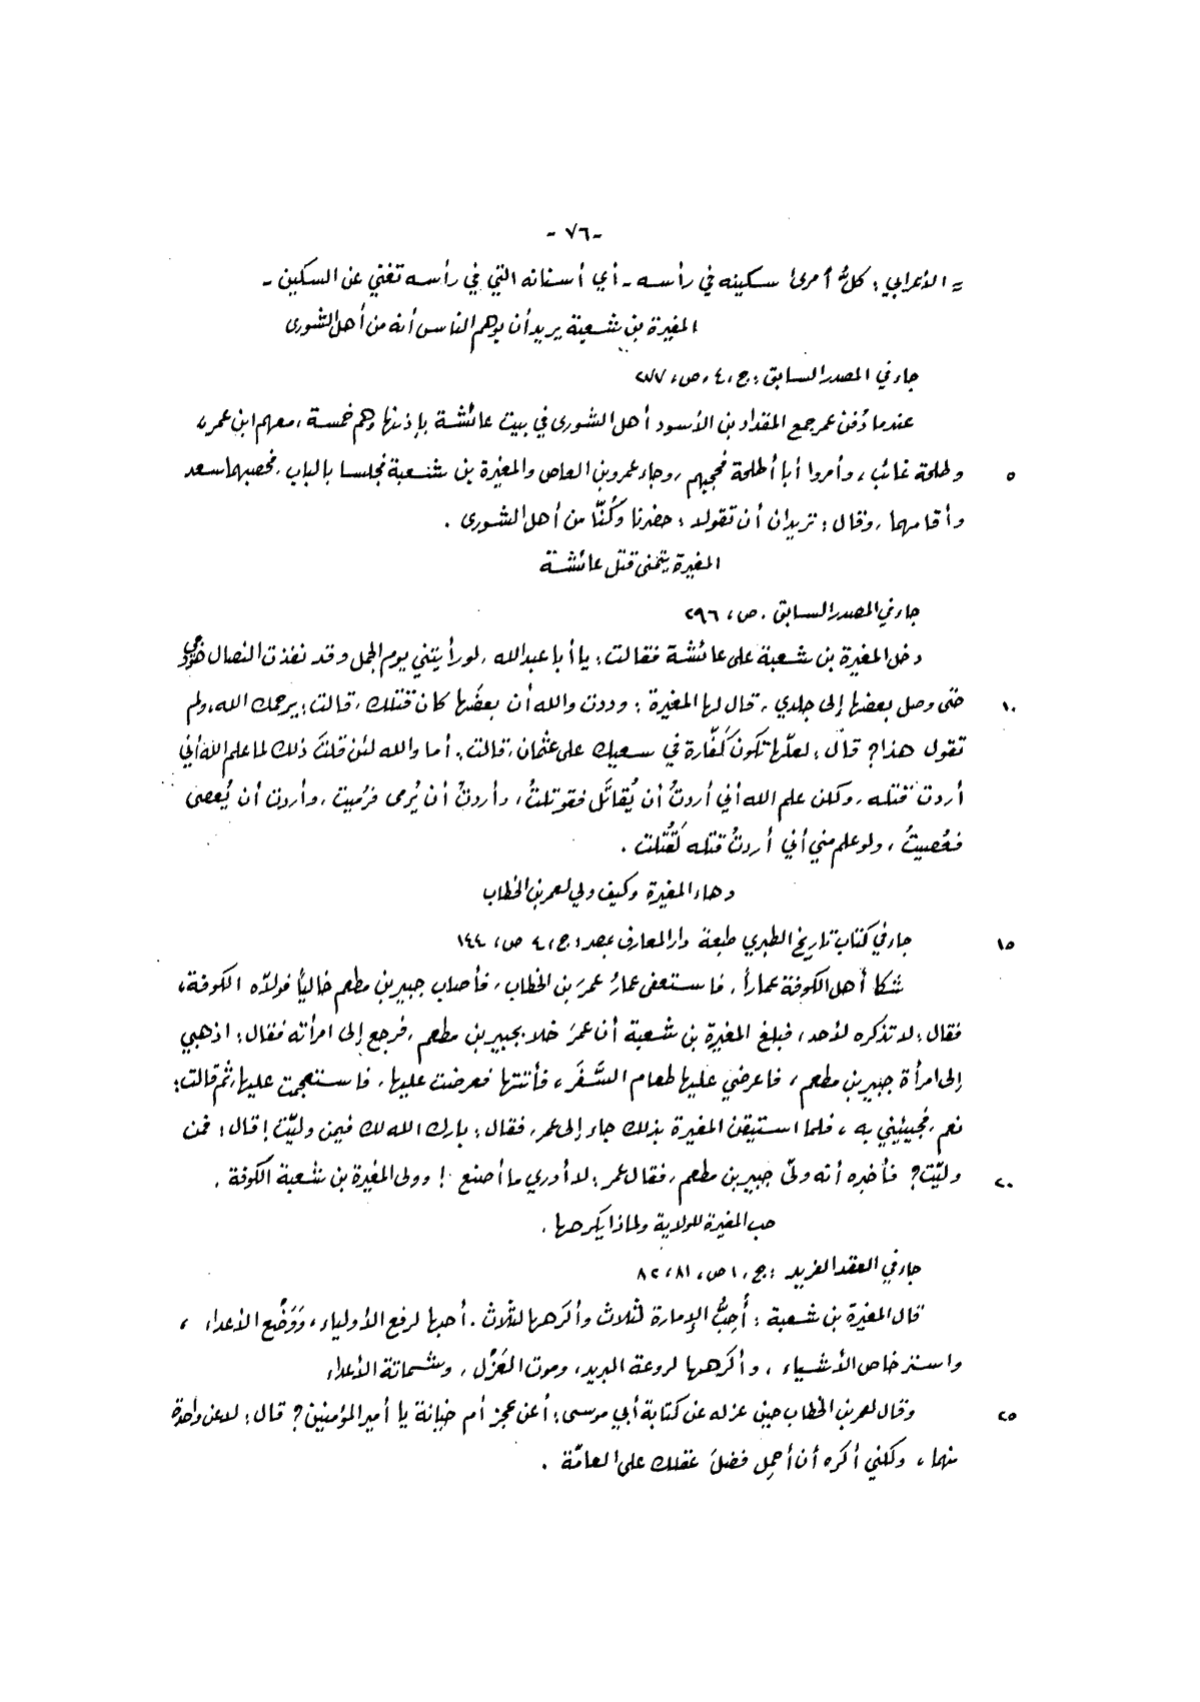 - ٧٦ -
= الأعرابي: كلُّ أمرئ سكينه في رأسه - أي أسنانه التي في رأسه تغني عن السكين -
المغيرة بن شعبة يريد أن يوهم الناس أنه من أهل الشورى
جاء في المصدر السابق: ج، ٤، ص،
عندما دُفن عمر جمع المقداد بن الأسود أهل الشورى في بيت عائشة بإذنها وهم خمسة، معهم ابن عمر،
٥ وطلحة غائب، وأمروا أبا أطلحة فحجبهم، وجاء عمرو بن العاص والمغيرة بن شعبة فجلسا بالباب، فحصبهما سعد
وأقامهما، وقال: تريدان أن تقولا: حضرنا وكُنّا من أهل الشورى.
المغيرة يتمنى قتل عائشة
جاء في المصدر السابق. ص، ٢٩٦
دخل المغيرة بن شعبة على عائشة فقالت: يا أبا عبد الله، لو رأيتني يوم الجمل وقد نفذت النصال هودجي
١٠ حتى وصل بعضها إلى جلدي، قال لها المغيرة: وددت والله أن بعضَها كان قتلك، قالت: يرحمك الله، ولم
تقول هذا؟ قال: لعلّها تكون كَفّارة في سعيك على عثمان، قالت: أما والله لئن قلتَ ذلك لما علم الله أني
أردت قتله، ولكن علم الله أني أردتُ أن يُقاتَل فقوتلتُ، وأردتُ أن يُرمى فرُميت، وأردت أن يُعصى
فعُصيتُ، ولو علم مني أني أردتُ قتله لَقُتلت.
دهاء المغيرة وكيف ولي لعمر بن الخطاب
١٥ جاء في كتاب تاريخ الطبري طبعة دار المعارف بمصر: ج، ٤ ص، ١٤٤
شكا أهل الكوفة عماراً، فاستعفى عمارُ عمرَ بن الخطاب، فأصاب جبير بن مطعم خالياً فولاّه الكوفة،
فقال: لا تذكره لأحد، فبلغ المغيرة بن شعبة أن عمرَ خلا بجبير بن مطعم، فرجع إلى امرأته فقال: اذهبي
إلى امرأة جبير بن مطعم، فاعرضي عليها طعام السَّفَر، فأتتها فعرضت عليها، فاستعجمت عليها، ثم قالت:
نعم، فجيئيني به، فلما استيقن المغيرة بذلك جاء إلى عمر، فقال: بارك الله لك فيمن وليّت! قال: فمن
٢٠ وليّت؟ فأخبره أنه ولّى جبير بن مطعم، فقال عمر: لا أدري ما أصنع! وولى المغيرة بن شعبة الكوفة.
حب المغيرة للولاية ولماذا يكرهها.
جاء في العقد الفريد: ج، ١ ص، ٨١، ٨٢
قال المغيرة بن شعبة: أُحِبُّ الإمارة لثلاث وأكرهها لثلاث. أحبها لرفع الأولياء، وَوَضْع الأعداء،
واسترخاص الأشياء، وأكرهها لروعة البريد، وموت العَزْل، وشماتة الأعداء
٢٥ وقال لعمر بن الخطاب حين عزله عن كتابة أبي موسى: أعن عجز أم خيانة يا أمير المؤمنين؟ قال: لا عن واحدة
منهما، ولكني أكره أن أحمل فضلَ عقلك على العامّة.